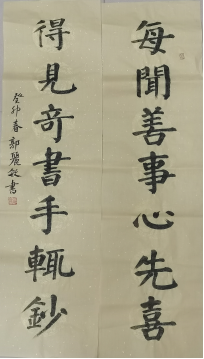 每聞善事心先喜
得見奇書手輒鈔
癸卯春郭麗書